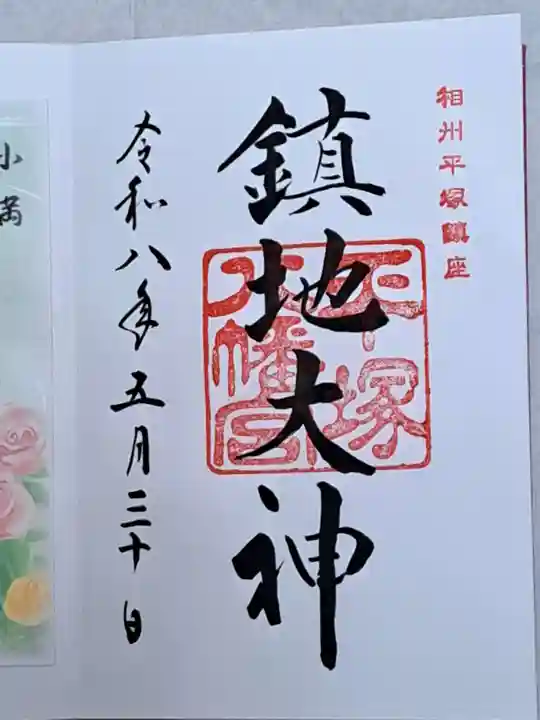 相州平塚鎮座
鎮地大神
平塚
八幡宮
令和八年五月三十日
小満